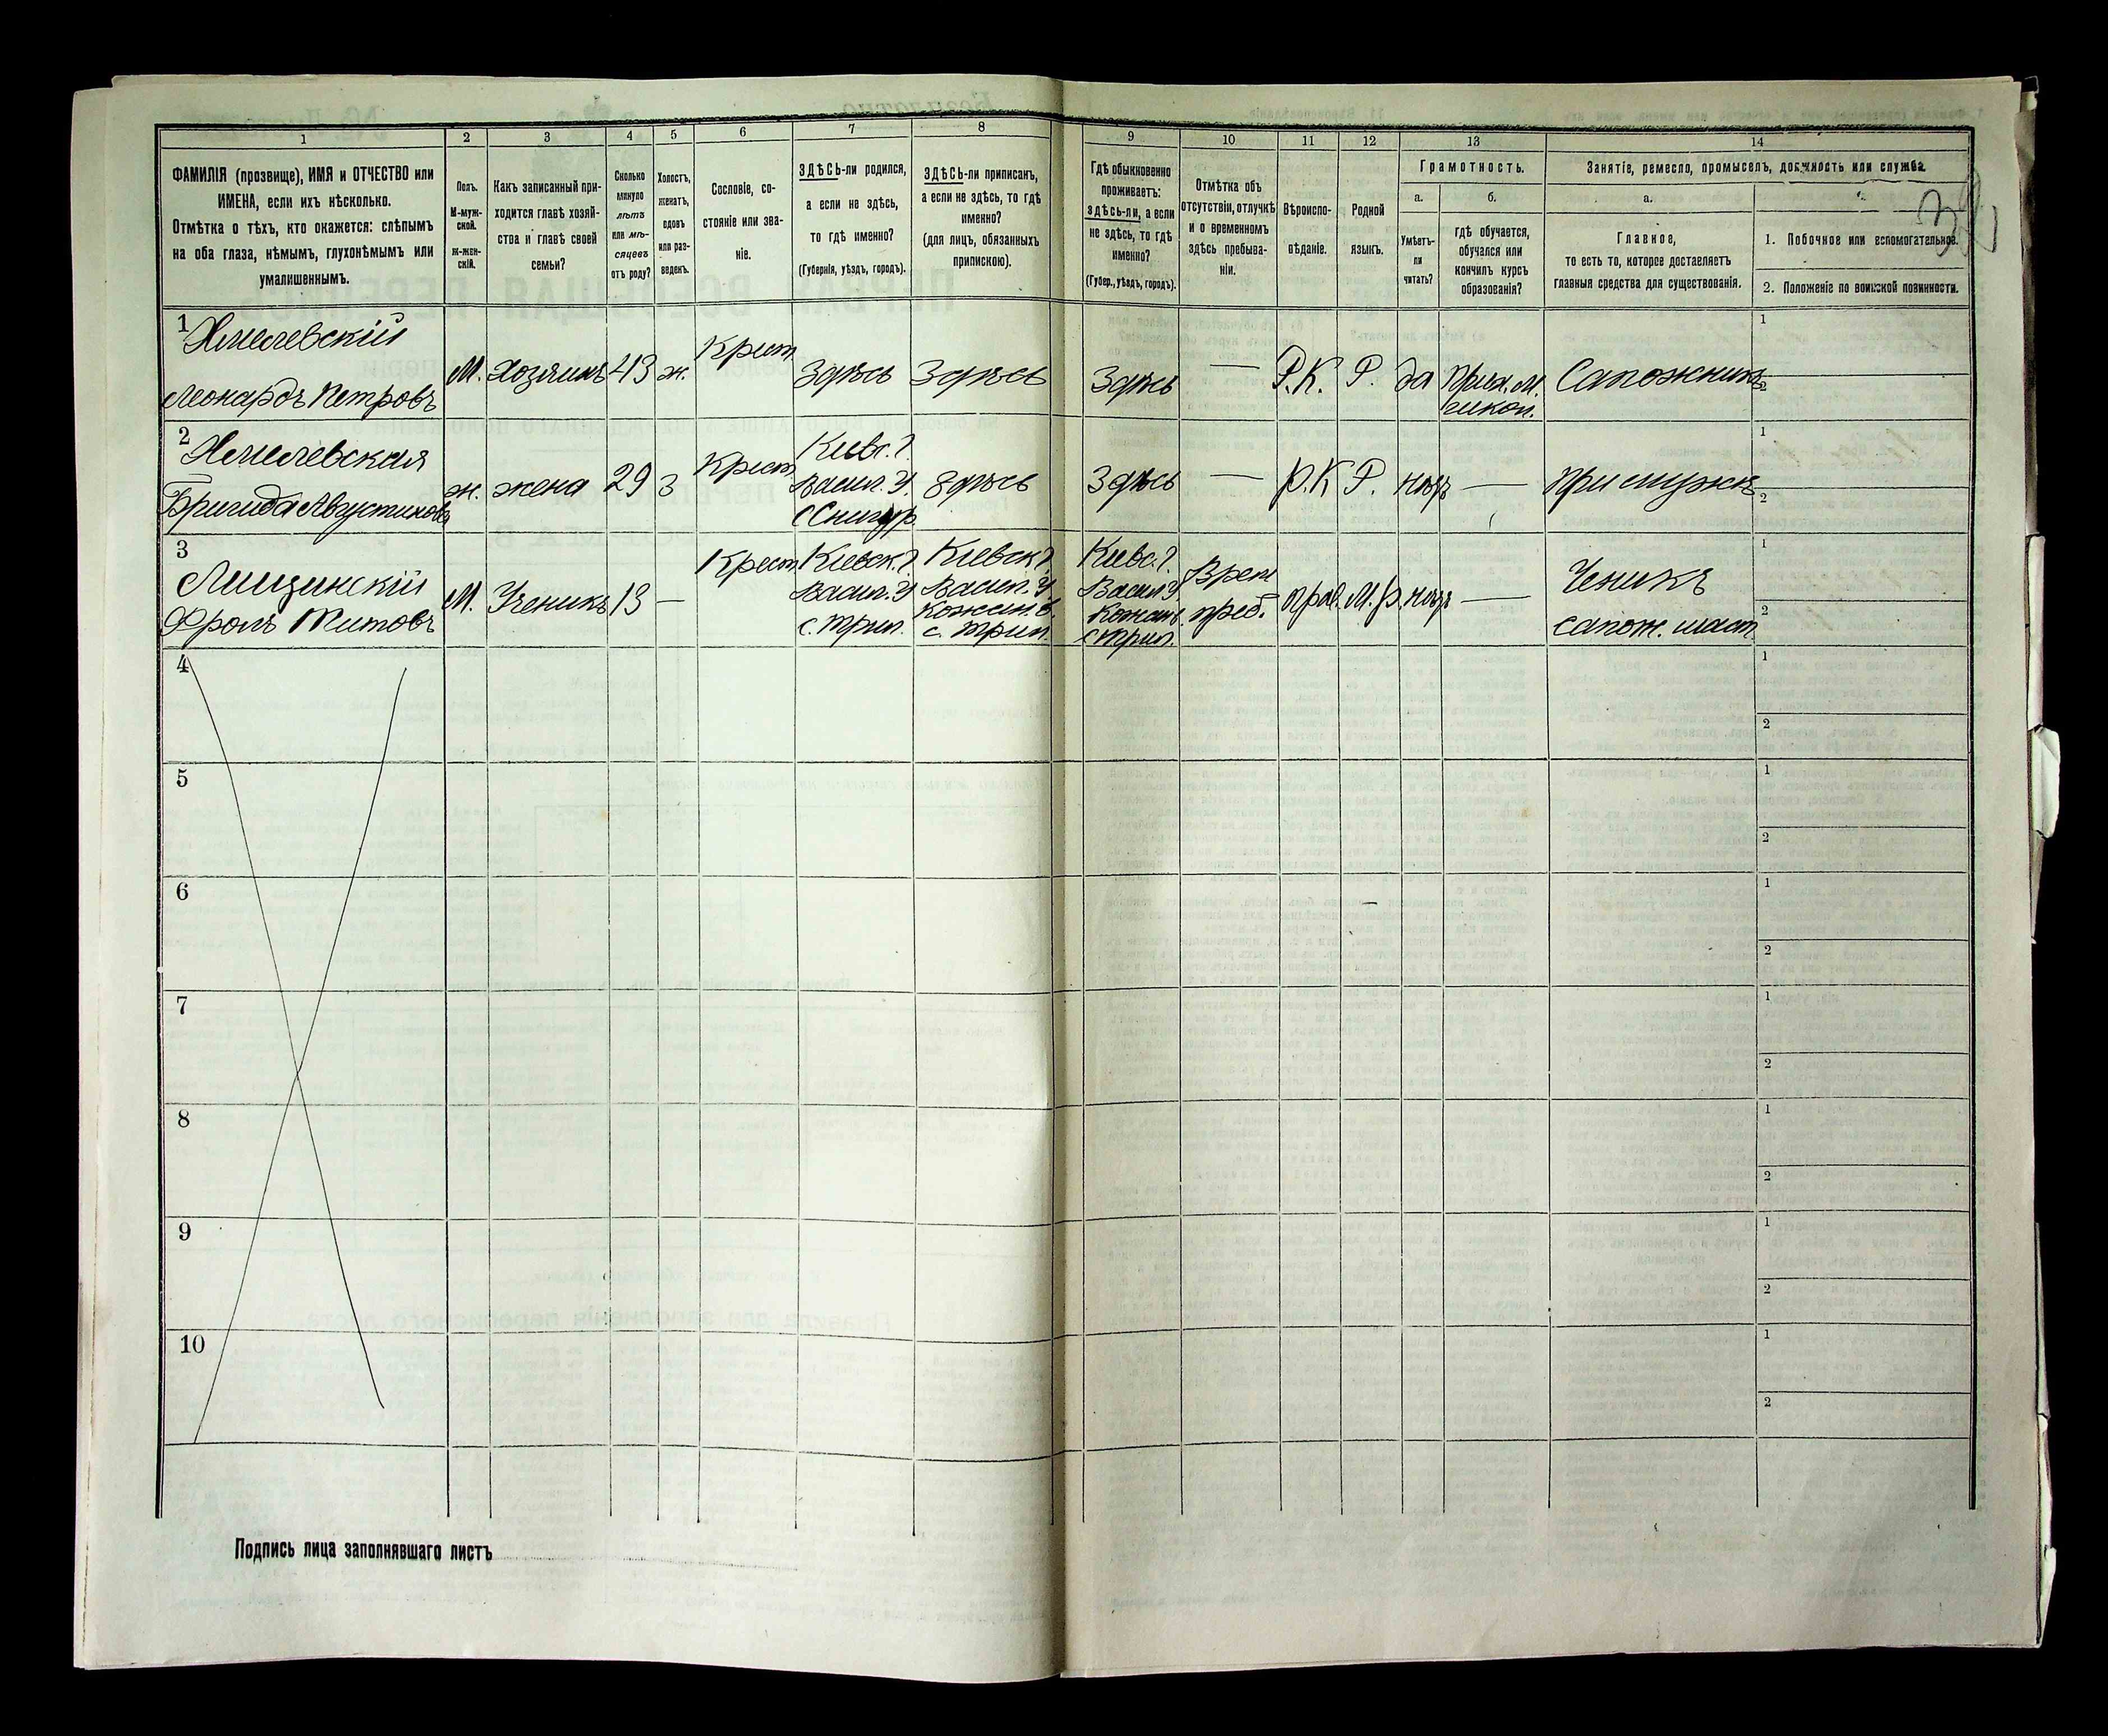 1 2 3 4 5 6 7 8 9 10 11 12 13 14
ФАМИЛІЯ (прозвище), ИМЯ и ОТЧЕСТВО или
ИМЕНА, если ихъ нѣсколько.
Отмѣтка о тѣхъ, кто окажется: слѣпымъ
на оба глаза, нѣмымъ, глухонѣмымъ или
умалишеннымъ.
Полъ.
М-муж-
ской.
Ж-жен-
скій.
Какъ записанный при-
ходится главѣ хозяй-
ства и главѣ своей
семьи?
Сколько
минуло
лѣтъ
или мѣ-
сяцевъ
отъ роду?
Холостъ,
женатъ,
вдовъ
или раз-
веденъ.
Сословіе, со-
стояніе или зва-
ніе.
ЗДѢСЬ-ли родился,
а если не здѣсь,
то гдѣ именно?
(Губернія, уѣздъ, городъ).
ЗДѢСЬ-ли приписанъ,
а если не здѣсь, то гдѣ
именно?
(для лицъ, обязанныхъ
припискою).
Гдѣ обыкновенно
проживаетъ:
здѣсь-ли, а если
не здѣсь, то гдѣ
именно?
(Губер., уѣздъ, городъ).
Отмѣтка объ
отсутствіи, отлучкѣ
и о временномъ
здѣсь пребыва-
ніи.
Вѣроиспо-
вѣданіе.
Родной
языкъ.
Грамотность.
а.
Умѣетъ-
ли
читать?
б.
гдѣ обучается,
обучался или
кончилъ курсъ
образованія?
Занятіе, ремесло, промыселъ, должность или служба.
а.
Главное,
то есть то, которое доставляетъ
главныя средства для существованія.
1. Побочное или вспомогательное.
2. Положеніе по воинской повинности.
1 Хмелевскій
Леонардъ Петровъ
М.
Хозяинъ
43
ж.
Крест
Здѣсь
Здѣсь
Здѣсь
—
Р.К.
Р.
да
Прих. М.
школ.
Сапожникъ
1
2
2 Хмелевская
Бригида Августинова
ж.
жена
29
З
Крест
Кіевс. г.
Васил. У.
с Снигур
Здѣсь
Здѣсь
—
Р.К
Р.
нѣтъ
—
При мужѣ
1
2
3
Лищинскій
Фролъ Титовъ
М.
Ученикъ
13
—
Крест
Кіевск. г.
Васил. У
с. Трил.
Кіевск г.
Васил. У
Кожан. в.
с. Трил.
Кіевс. г.
Васил У.
Кожан в.
с Трил.
Врем
преб.
прав.
М.р.
нѣтъ
—
Ченикъ
сапож. маст
1
2
4
1
2
5
1
2
6
1
2
7
1
2
8
1
2
9
1
2
10
1
2
Подпись лица заполнявшаго листъ